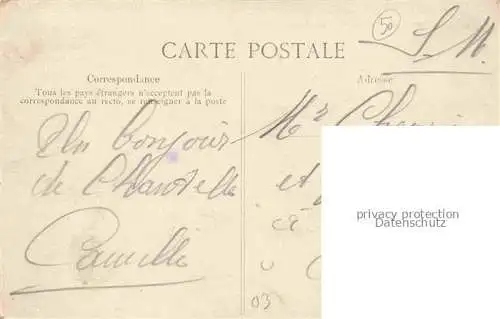 50
S. M.
CARTE POSTALE
Correspondance
Adresse
Tous les pays étrangers n'acceptent pas la
correspondance au recto, se renseigner à la poste
Un bonjour
de Chantelle
Camille
Mr
et
privacy protection
Datenschutz
03